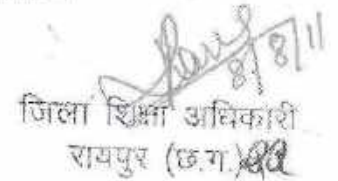 8/8/11
जिला शिक्षा अधिकारी
रायपुर (छ.ग.)